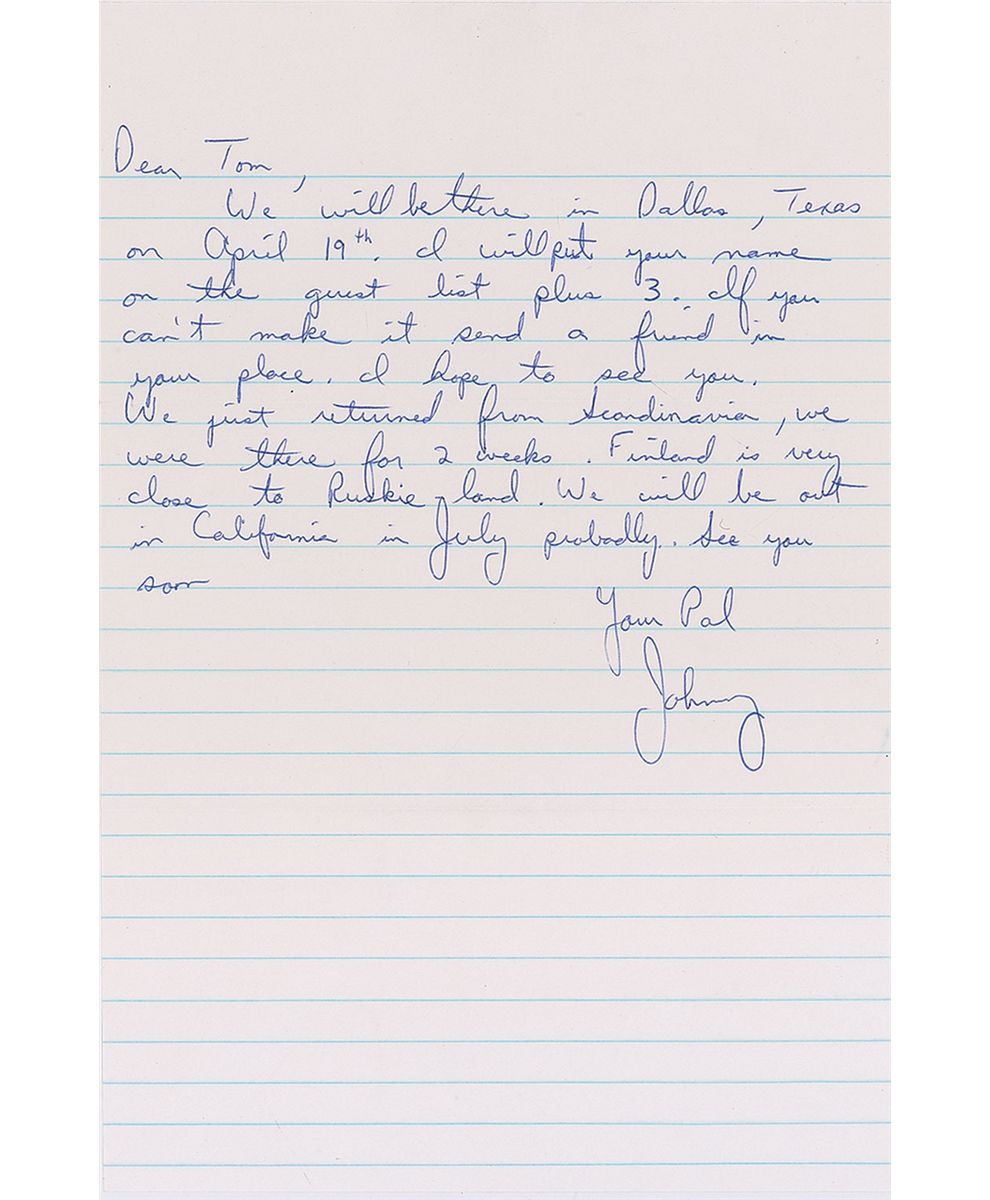 Dear Tom,
We will be there in Dallas, Texas
on April 19th. I will put your name
on the guest list plus 3. If you
can't make it send a friend in
your place. I hope to see you.
We just returned from Scandinavia, we
were there for 2 weeks. Finland is very
close to Ruskie land. We will be out
in California in July probadly. See you
soon
Your Pal
Johnny